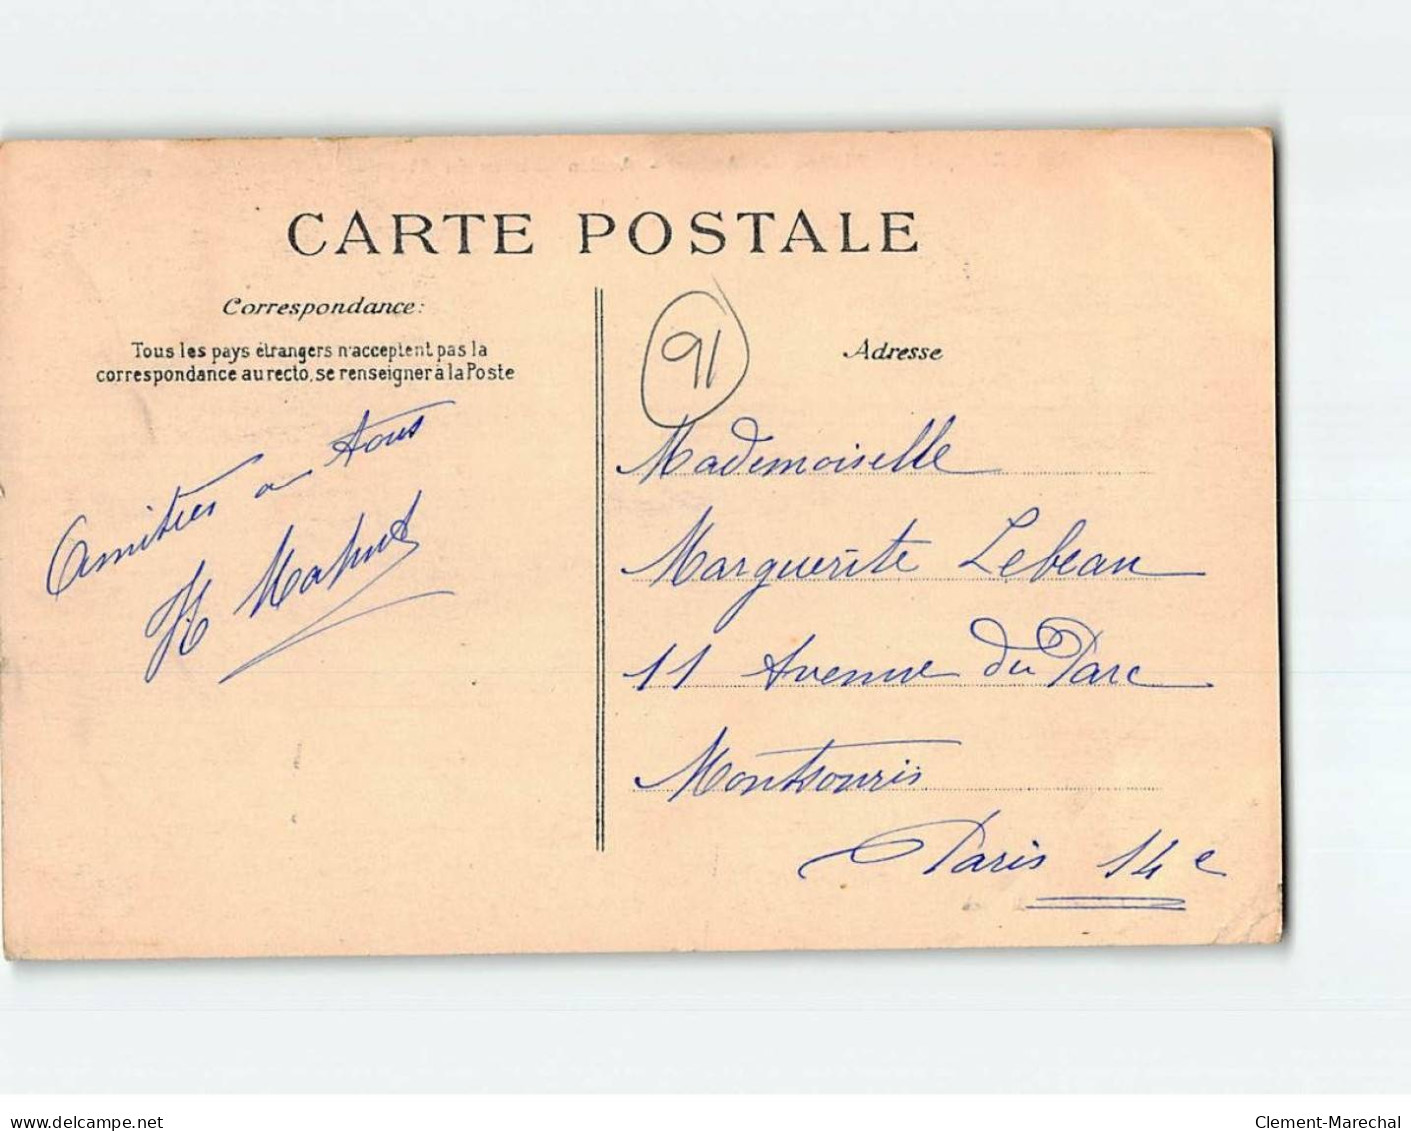 CARTE POSTALE
Correspondance:
Tous les pays étrangers n'acceptent pas la
correspondance au recto, se renseigner à la Poste
Amitiés a tous
H Mahut
91
Adresse
Mademoiselle
Marguerite Lebeau
11 Avenue du Parc
Montsouris
Paris 14e
www.delcampe.net
Clement-Marechal